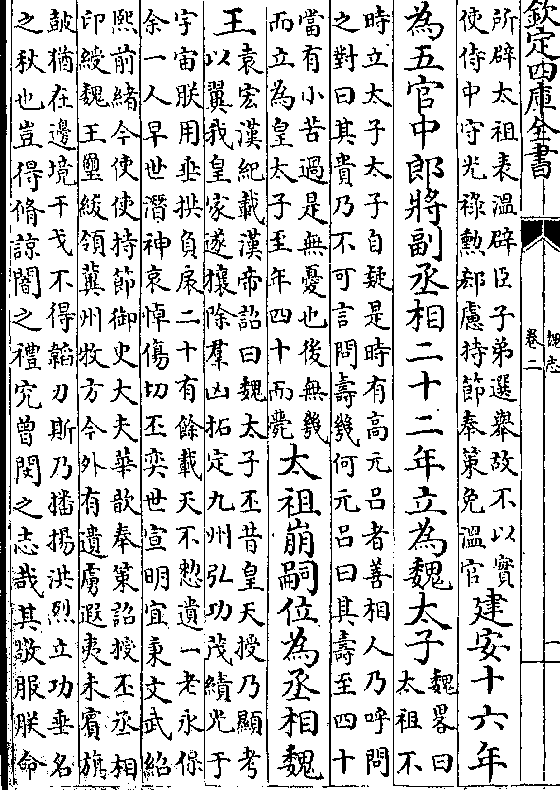 欽定四庫全書
魏志
卷二
所辟太祖表溫辟臣子弟選舉故不以實
使侍中守光祿勲郗慮持節奉策免溫官
建安十六年
為五官中郎將副丞相二十二年立為魏太子
魏畧曰
太祖不
時立太子太子自疑是時有高元呂者善相人乃呼問
之對曰其貴乃不可言問壽幾何元呂曰其壽至四十
當有小苦過是無憂也後無幾
而立為皇太子至年四十而薨
太祖崩嗣位為丞相魏
王
袁宏漢紀載漢帝詔曰魏太子丕昔皇天授乃顯考
以翼我皇家遂攘除羣凶拓定九州弘功茂績光于
宇宙朕用垂拱負扆二十有餘載天不憖遺一老永保
余一人早世潛神哀悼傷切丕奕世宣明宜秉文武紹
熙前緒今使使持節御史大夫華歆奉策詔授丕丞相
印綬魏王璽紱領冀州牧方今外有遺虜遐夷未賓旗
鼓猶在邊境干戈不得韜刃斯乃播揚洪烈立功垂名
之秋也豈得脩諒闇之禮究曾閔之志哉其敬服朕命